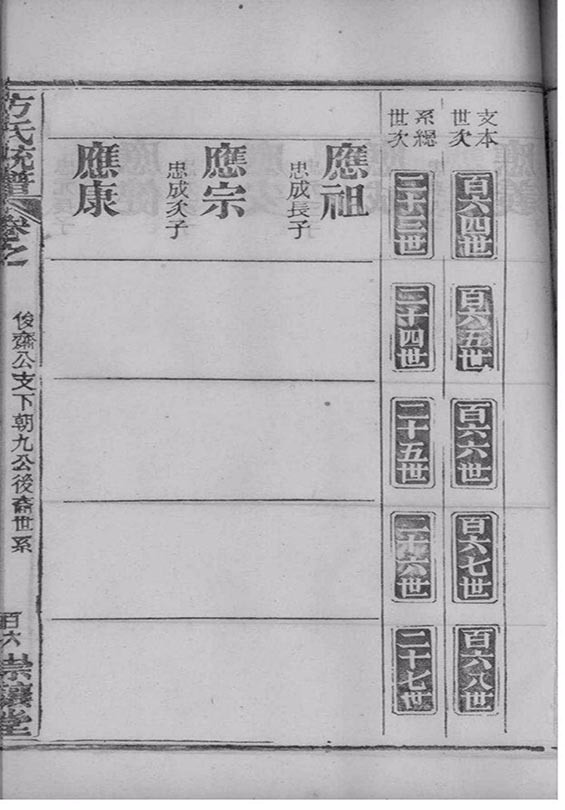 支本
世次
百六四世
百六五世
百六六世
百六七世
百六八世
系總
世次
二十三世
二十四世
二十五世
二十六世
二十七世
應祖
忠成長子
應宗
忠成次子
應康
方氏統譜
卷之
俊齋公支下朝九公後裔世系
百六
崇讓堂